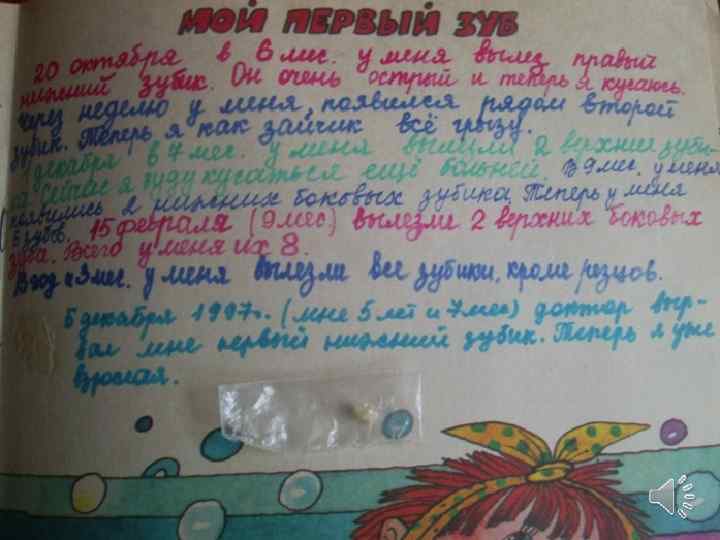 МОЙ ПЕРВЫЙ ЗУБ
20 октября в 6 мес. у меня вылез правый
нижний зубик. Он очень острый и теперь я кусаюсь.
Через неделю у меня, появился рядом второй
зубик. Теперь я как зайчик всё грызу.
декабря в 7 мес. у меня вылезли 2 верхние зуби-
ка. Сейчас я буду кусаться ещё больней. В 9 мес. у меня
появились 2 нижних боковых зубика. Теперь у меня
6 зубов. 15 февраля (9 мес) вылезли 2 верхних боковых
зуба. Всего у меня их 8.
В год и 3 мес. у меня вылезли все зубики, кроме резцов.
5 декабря 1997г. (мне 5 лет и 7 мес) доктор выр-
вал мне первый нижний зубик. Теперь я уже
взрослая.